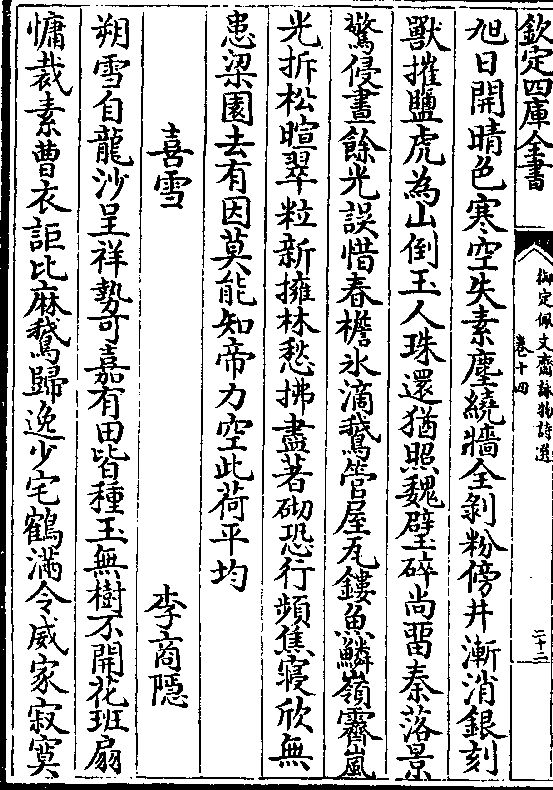 欽定四庫全書
御定佩文齋詠物詩選
卷十四
二十二
旭日開晴色寒空失素塵繞牆全剝粉傍井漸消銀刻
獸摧鹽虎為山倒玉人珠還猶照魏璧碎尚留秦落景
驚侵晝餘光誤惜春檐氷滴鵞管屋瓦鏤魚鱗嶺霽嵐
光拆松暄翠粒新擁林愁拂盡著砌恐行頻焦寢欣無
患梁園去有因莫能知帝力空此荷平均
喜雪
李商隠
朔雪自龍沙呈祥勢可嘉有田皆種玉無樹不開花班扇
慵裁素曹衣詎比麻鵞歸逸少宅鶴滿令威家寂寞